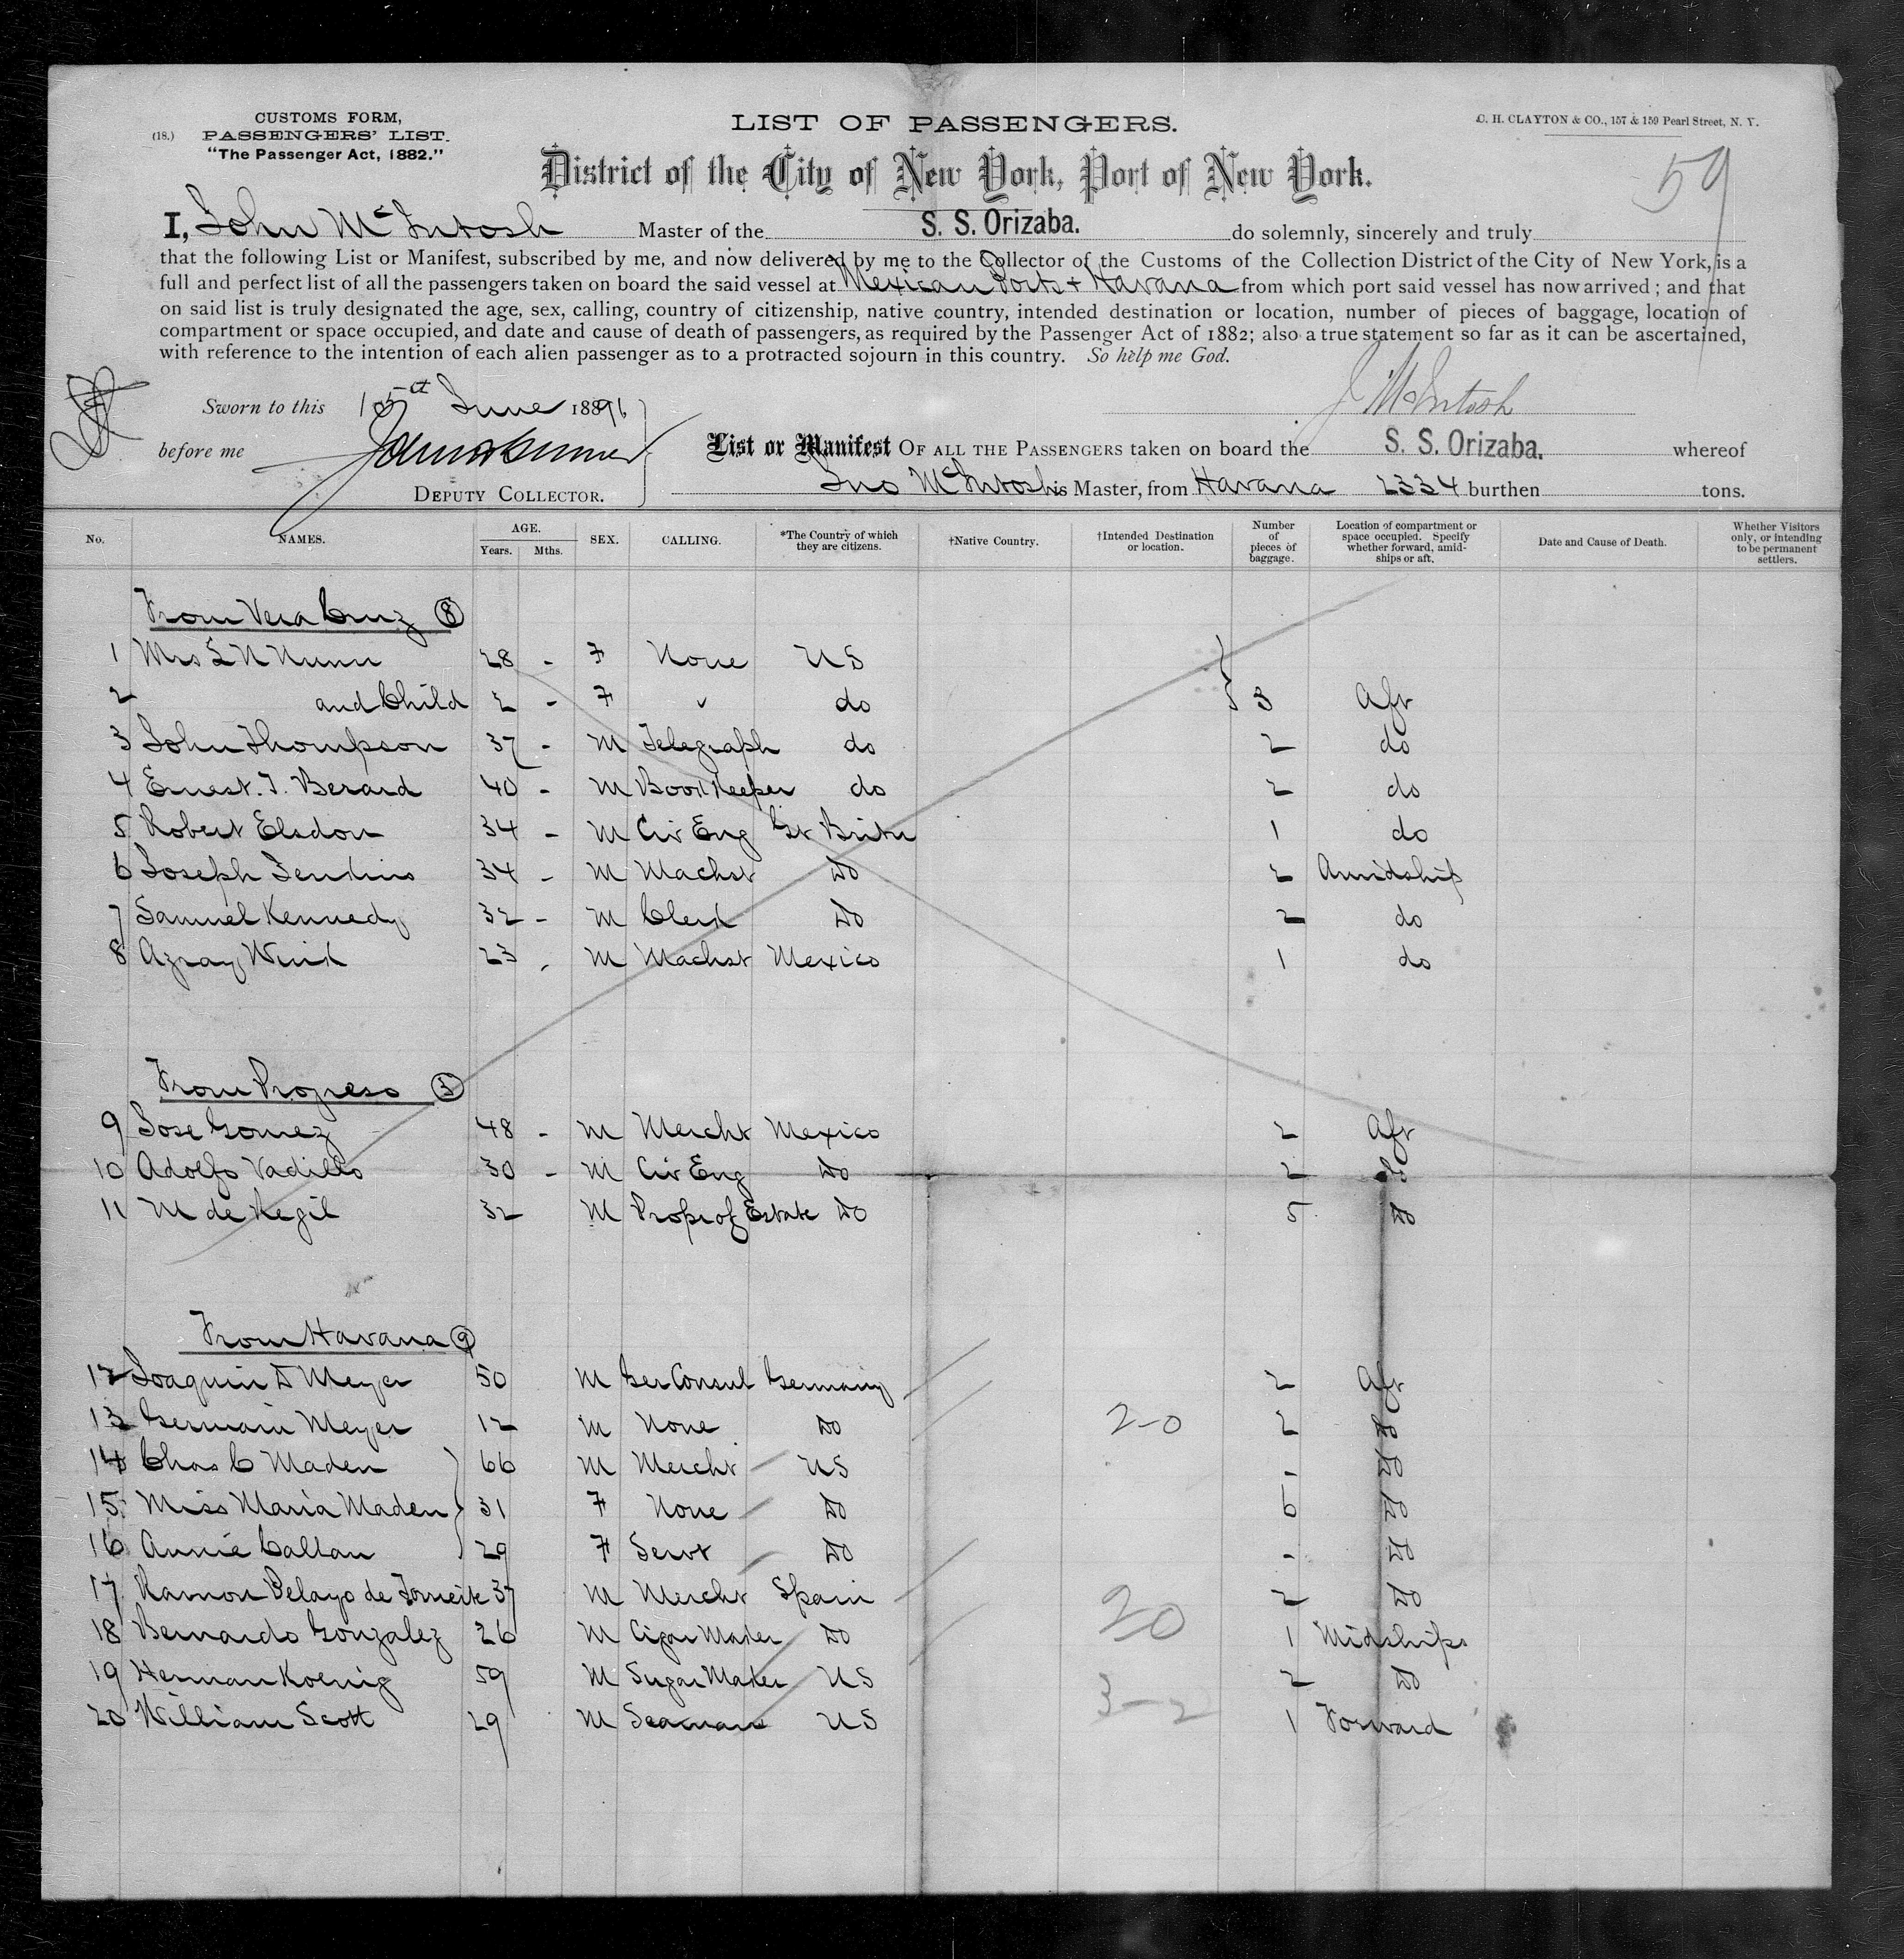 CUSTOMS FORM,
(18.) PASSENGERS' LIST.
"The Passenger Act, 1882."
LIST OF PASSENGERS.
C. H. CLAYTON & CO., 157 & 159 Pearl Street, N. Y.
District of the City of New York, Port of New York.
59
I, John McIntosh Master of the S. S. Orizaba. do solemnly, sincerely and truly
that the following List or Manifest, subscribed by me, and now delivered by me to the Collector of the Customs of the Collection District of the City of New York, is a
full and perfect list of all the passengers taken on board the said vessel at Mexican Ports + Havana from which port said vessel has now arrived; and that
on said list is truly designated the age, sex, calling, country of citizenship, native country, intended destination or location, number of pieces of baggage, location of
compartment or space occupied, and date and cause of death of passengers, as required by the Passenger Act of 1882; also a true statement so far as it can be ascertained,
with reference to the intention of each alien passenger as to a protracted sojourn in this country. So help me God.
Sworn to this June 1896
J McIntosh
before me
List or Manifest OF ALL THE PASSENGERS taken on board the S. S. Orizaba. whereof
DEPUTY COLLECTOR.
Jno McIntosh is Master, from Havana 2334 burthen tons.
No. NAMES. AGE. Years. Mths. SEX. CALLING. *The Country of which they are citizens. †Native Country. †Intended Destination or location. Number of pieces of baggage. Location of compartment or space occupied. Specify whether forward, amidships or aft. Date and Cause of Death. Whether Visitors only, or intending to be permanent settlers.
From Vera Cruz 8
1 Mrs L N Nunn 28 - F None US
2 and Child 2 - F " do 3 Aft
3 John Thompson 37 - M Telegraph do 2 do
4 Ernest. J. Berard 40 - M Book Keeper do 2 do
5 Robert Elsdon 34 - M Civ Eng Gt Britn 1 do
6 Joseph Jenkins 34 - M Machst Do 2 Amidship
7 Samuel Kennedy 32 - M Clerk Do 2 do
8 23 - M Machst Mexico 1 do
From Progreso 3
9 Jose Gomez 48 - M Mercht Mexico 2 Aft
10 Adolfo Vadillo 30 - M Civ Eng Do 2 do
11 M de Regil 32 M Prop of Estate Do 5 Do
From Havana 9
12 Joaquin D Meyer 50 M Ger Consul Germany 2 Aft
13 Germain Meyer 12 M None Do 2-0 2 Do
14 Chas C Maden 66 M Mercht US - Do
15 Miss Maria Maden 31 F None Do 6 Do
16 Annie Callan 29 F Servt Do - Do
17 Ramon Pelayo de 37 M Mercht Spain 2 Do
18 Bernardo Gonzalez 26 M Cigar Maker Do 20 1 Midships
19 Herman Koenig 59 M Sugar Maker US 2 Do
20 William Scott 29 M Seaman US 3-2 1 Forward